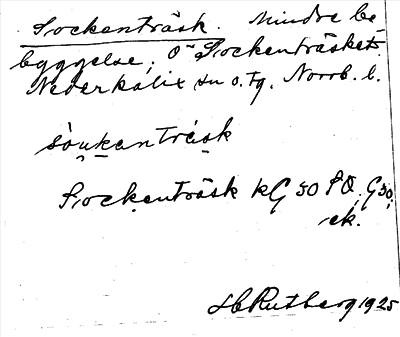 Sockenträsk. Mindre be-
byggelse, O~ Sockenträsket.
Nederkalix sn o. tg. Norrb. l.
sòukenträ́sk
Sockenträsk kG 50 SO, G 50,
ek.
H C Rutberg 1925